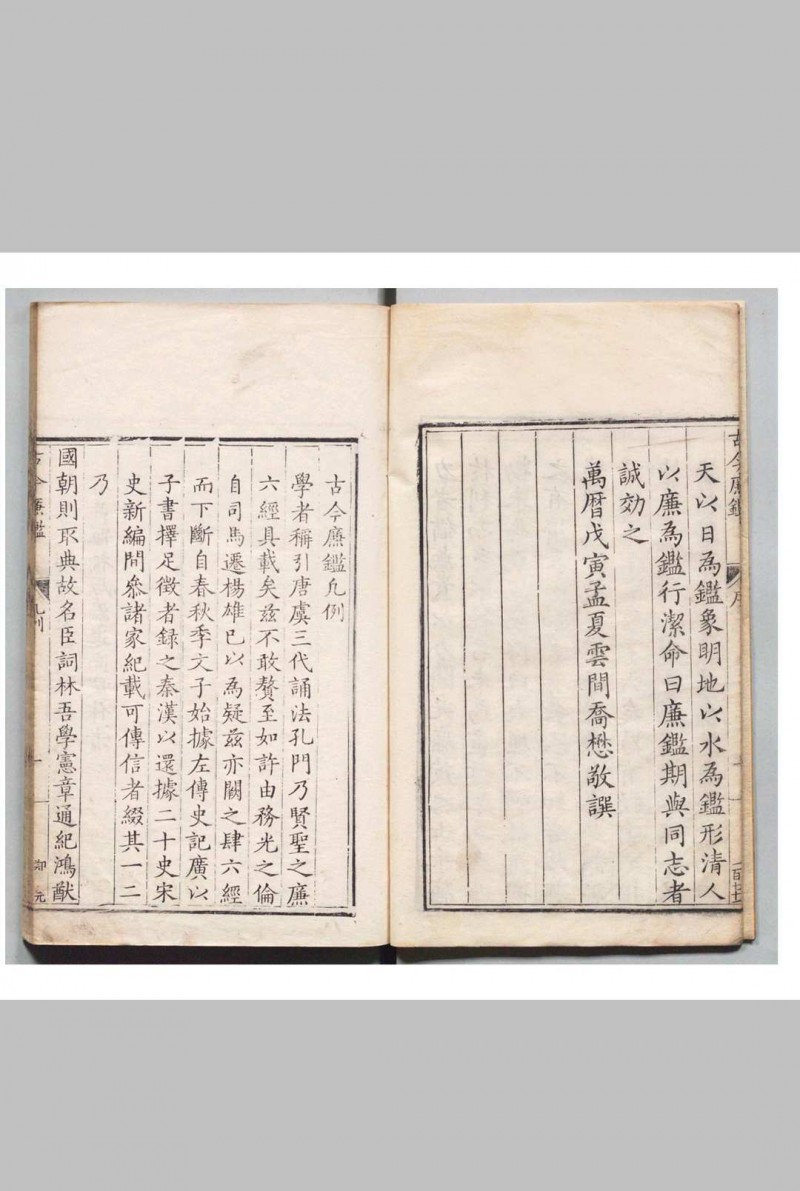 天以日為鑑象明地以水為鑑形清人
以廉為鑑行潔命曰廉鑑期與同志者
誠効之
萬曆戊寅孟夏雲間喬懋敬譔
古今廉鑑凡例
學者稱引唐虞三代誦法孔門乃賢聖之廉
六經具載矣茲不敢贅至如許由務光之倫
自司馬遷楊雄已以為疑茲亦闕之肆六經
而下斷自春秋季文子始據左傳史記廣以
子書擇足徵者録之秦漢以還據二十史宋
史新編間叅諸家紀載可傳信者綴其一二
乃
國朝則取典故名臣詞林吾學憲章通紀鴻猷
古今廉鑑
凡例